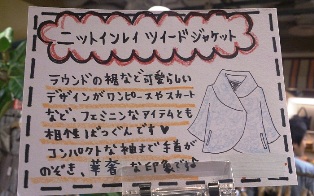 ニットインレイ ツイードジャケット
ラウンドの裾など可愛らしい
デザインがワンピースやスカート
など、フェミニンなアイテムとも
相性ばつぐんです♥
コンパクトな袖まで手首が
のぞき、華奢な印象です♪